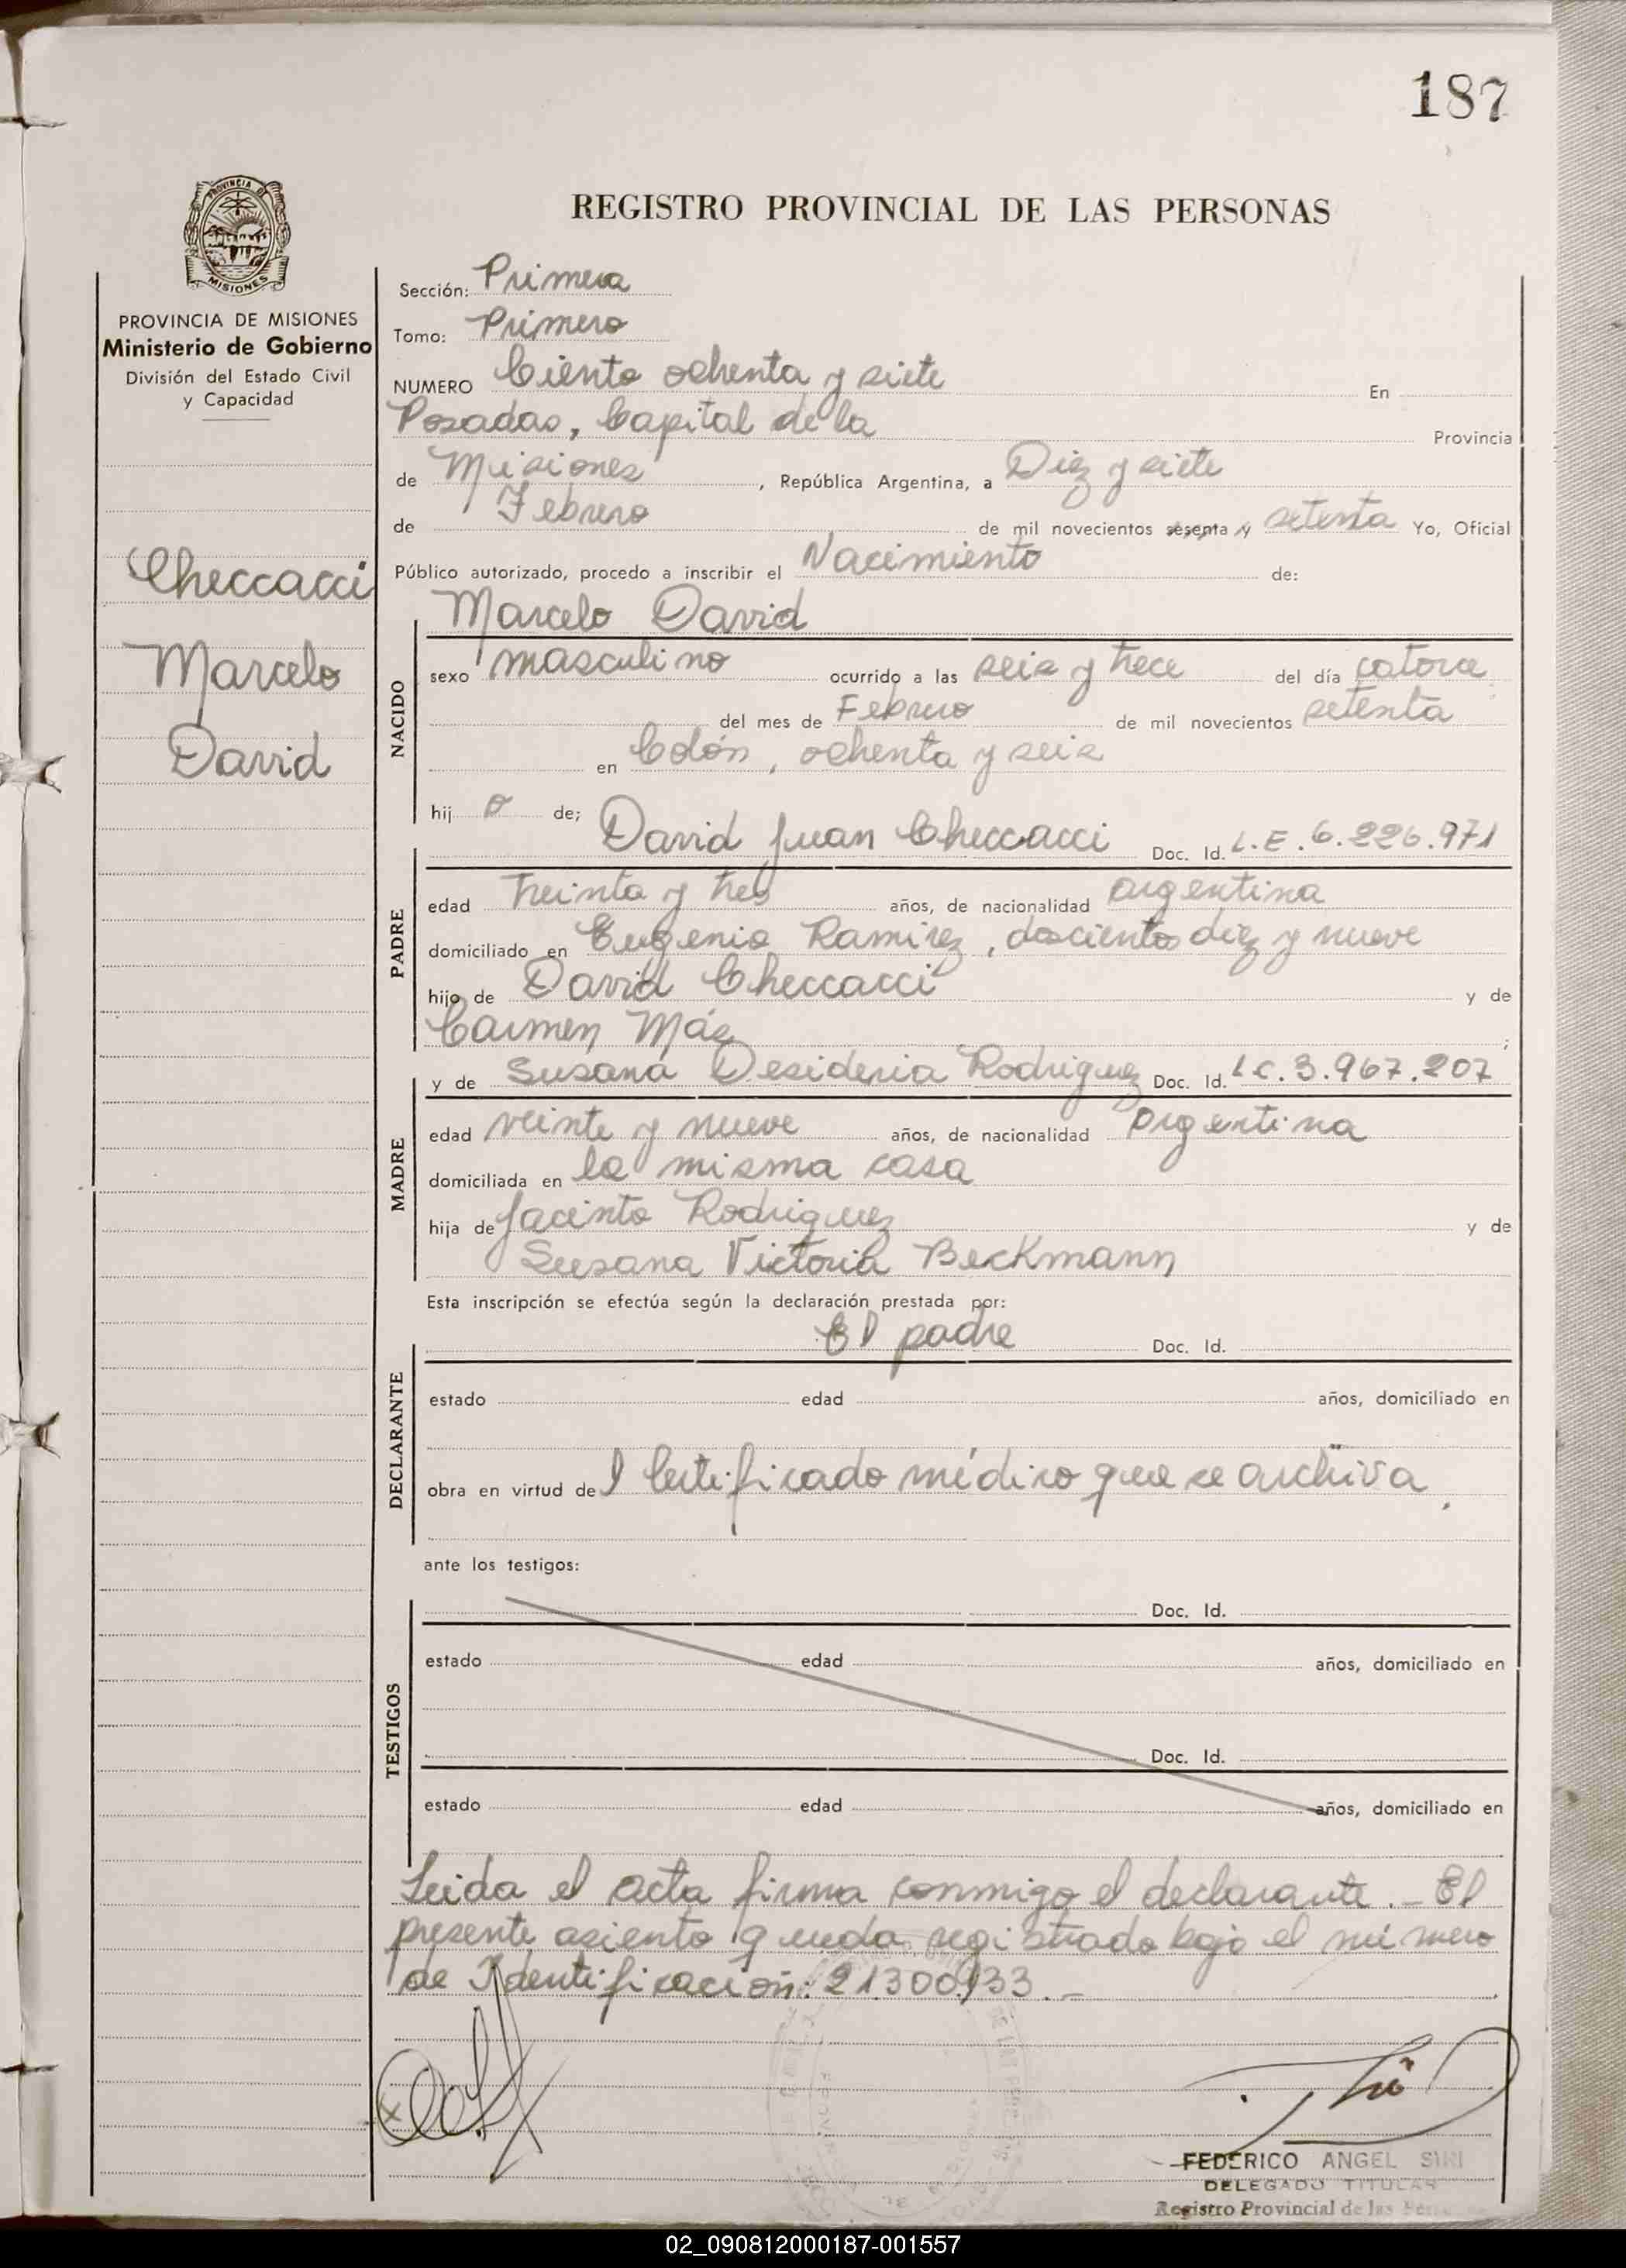 187
REGISTRO PROVINCIAL DE LAS PERSONAS
PROVINCIA DE
MISIONES
PROVINCIA DE MISIONES
Ministerio de Gobierno
División del Estado Civil
y Capacidad
Checcacci
Marcelo
David
Sección: Primera
Tomo: Primero
NUMERO Ciento ochenta y siete En
Posadas, Capital de la Provincia
de Misiones, República Argentina, a Diez y siete
de Febrero de mil novecientos sesenta y setenta Yo, Oficial
Público autorizado, procedo a inscribir el Nacimiento de:
Marcelo David
NACIDO
sexo masculino ocurrido a las seis y trece del día catorce
del mes de Febrero de mil novecientos setenta
en Colón, ochenta y seis
hij o de;
David Juan Checcacci Doc. Id. L.E. 6.226.971
PADRE
edad treinta y tres años, de nacionalidad argentina
domiciliado en Eugenio Ramirez, doscientos diez y nueve
hijo de David Checcacci y de
Carmen Máz;
y de Susana Desideria Rodriguez Doc. Id. L.C. 3.967.207
MADRE
edad veinte y nueve años, de nacionalidad argentina
domiciliada en la misma casa
hija de Jacinto Rodriguez y de
Susana Victoria Beckmann
Esta inscripción se efectúa según la declaración prestada por:
El padre Doc. Id.
DECLARANTE
estado edad años, domiciliado en
obra en virtud de l Certificado médico que se archiva.
ante los testigos:
Doc. Id.
TESTIGOS
estado edad años, domiciliado en
Doc. Id.
estado edad años, domiciliado en
Leida el acta firma conmigo el declarante.- El
presente asiento queda registrado bajo el número
de Identificación: 21.300.933.-
FEDERICO ANGEL SIRI
DELEGADO TITULAR
Registro Provincial de las
02_090812000187-001557